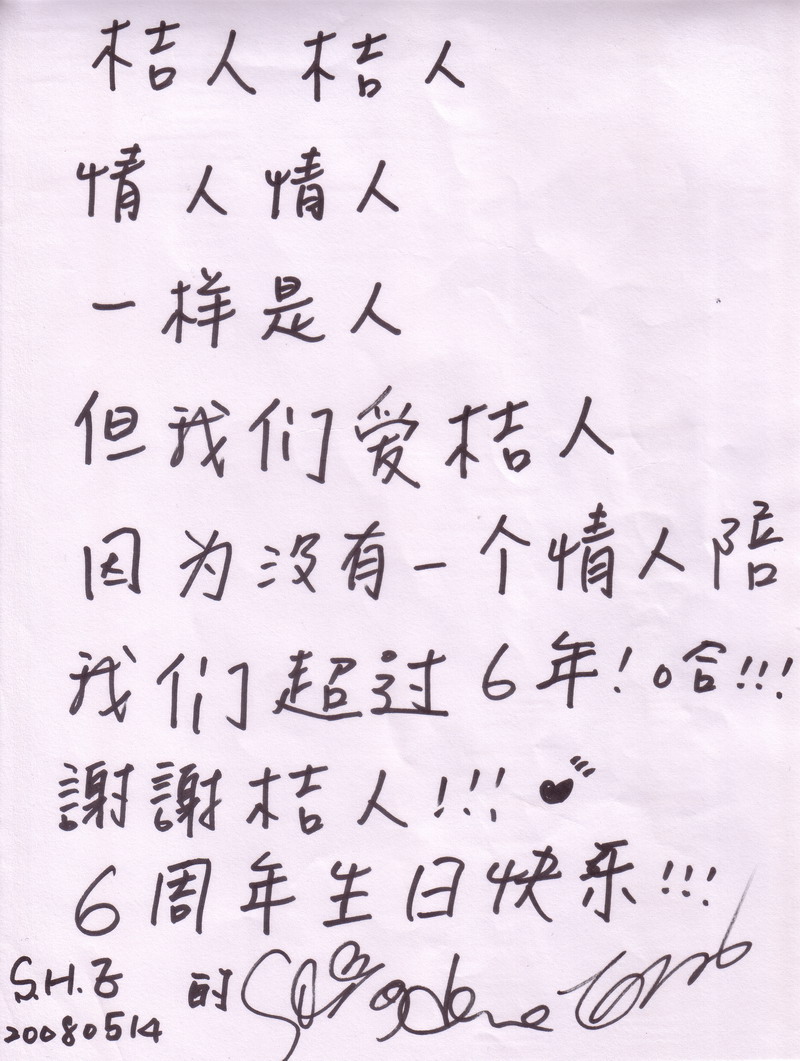 桔人 桔人
情人情人
一样是人
但我们爱桔人
因为没有一个情人陪
我们超过6年！哈!!!
謝謝桔人!!!
6周年生日快乐!!!
S.H.E 的
20080514